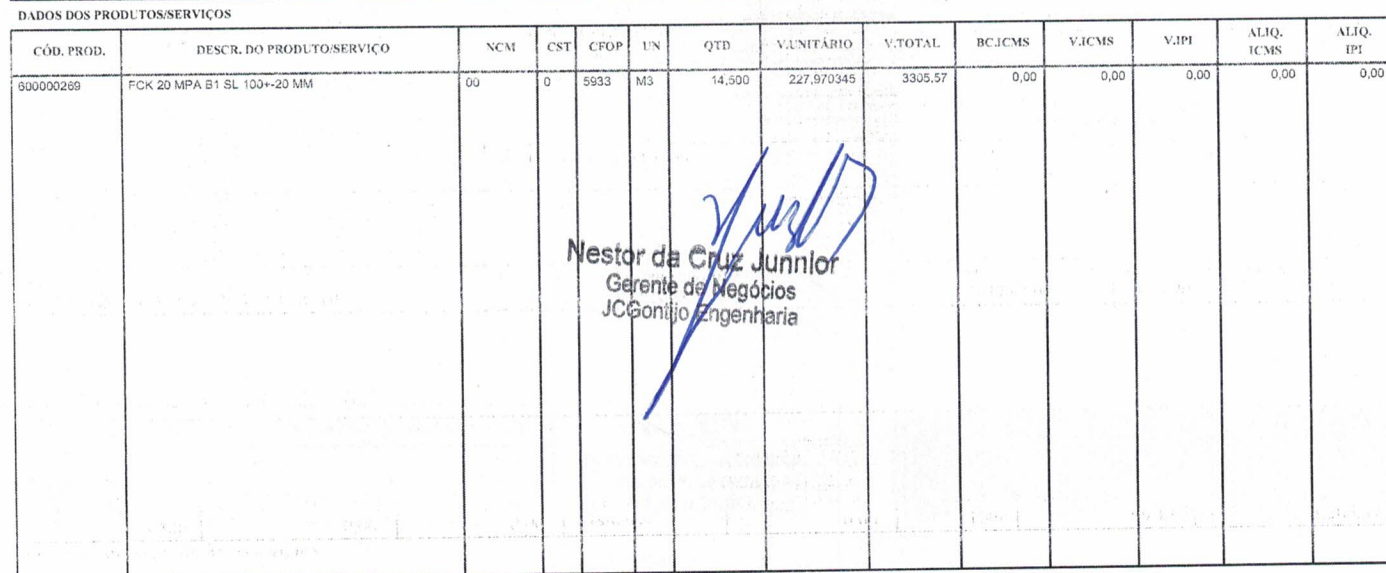 DADOS DOS PRODUTOS/SERVIÇOS
CÓD. PROD. DESCR. DO PRODUTO/SERVIÇO NCM CST CFOP UN QTD V.UNITÁRIO V.TOTAL BC.ICMS V.ICMS V.IPI ALIQ. ICMS ALIQ. IPI
600000269 FCK 20 MPA B1 SL 100+-20 MM 00 0 5933 M3 14,500 227,970345 3305,57 0,00 0,00 0,00 0,00 0,00
Nestor da Cruz Junnior
Gerente de Negócios
JCGontijo Engenharia